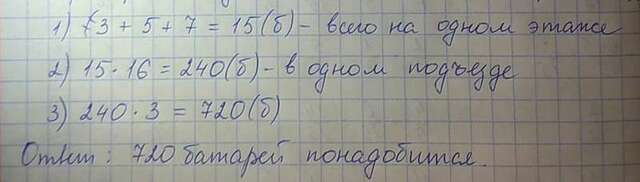 1) 3 + 5 + 7 = 15 (б) - всего на одном этаже
2) 15 · 16 = 240 (б) - в одном подъезде
3) 240 · 3 = 720 (б)
Ответ: 720 батарей понадобится.